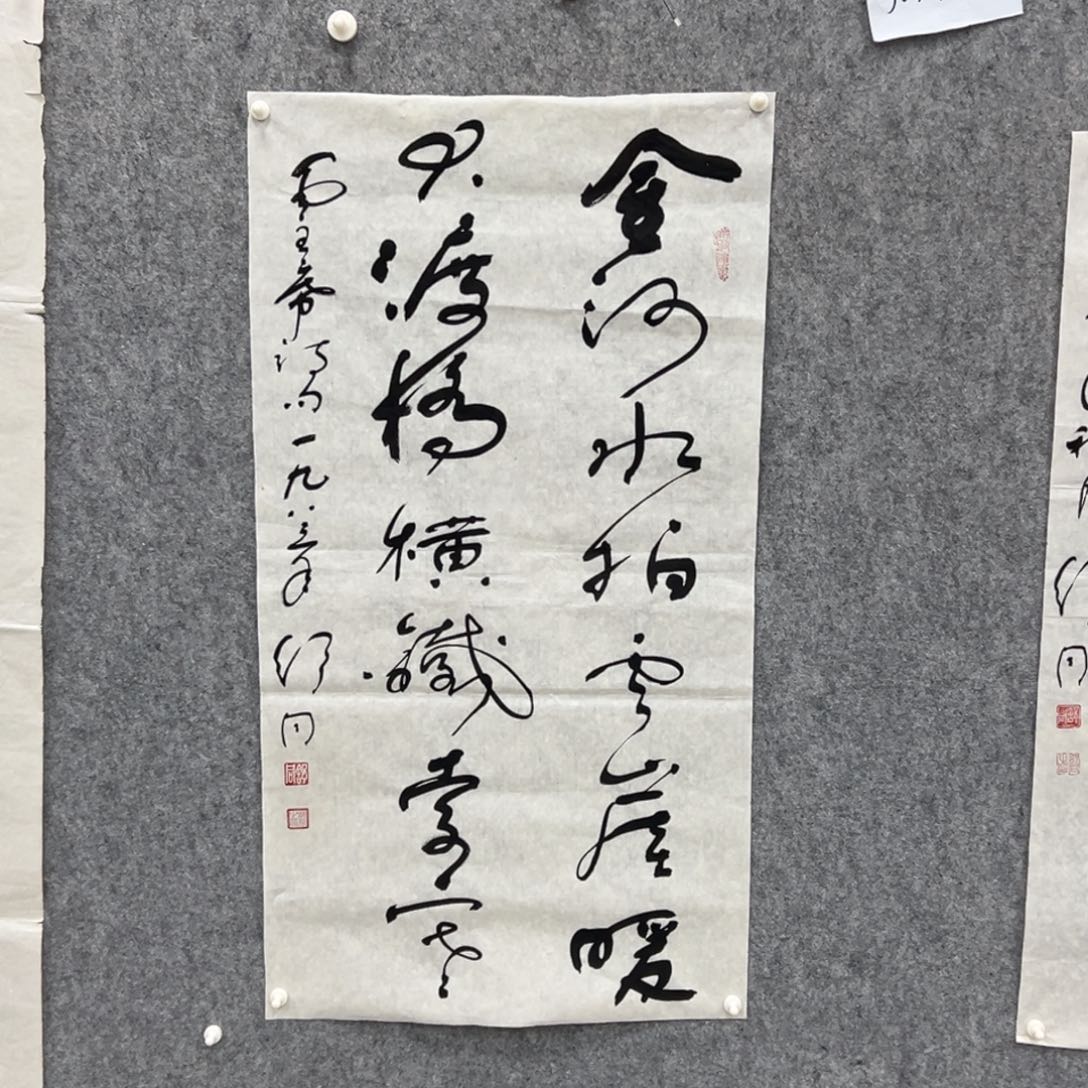 金沙水拍雲崖暖
大渡橋橫鐵索寒
毛主席詩句一九八三年 舒同
舒同